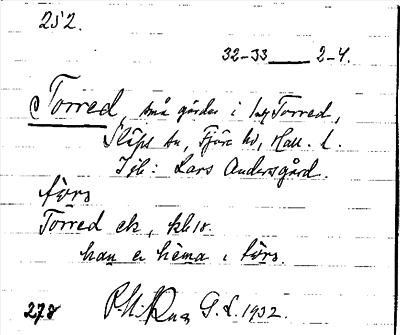 252.
32-33 2-4.
Torred, små gårdar i Torred,
Släps sn, Fjäre hd, Hall. l.
Lars Andersgård.
förs
Torred ek, kb 10.
han er hema i förs.
278 G. L. 1932.